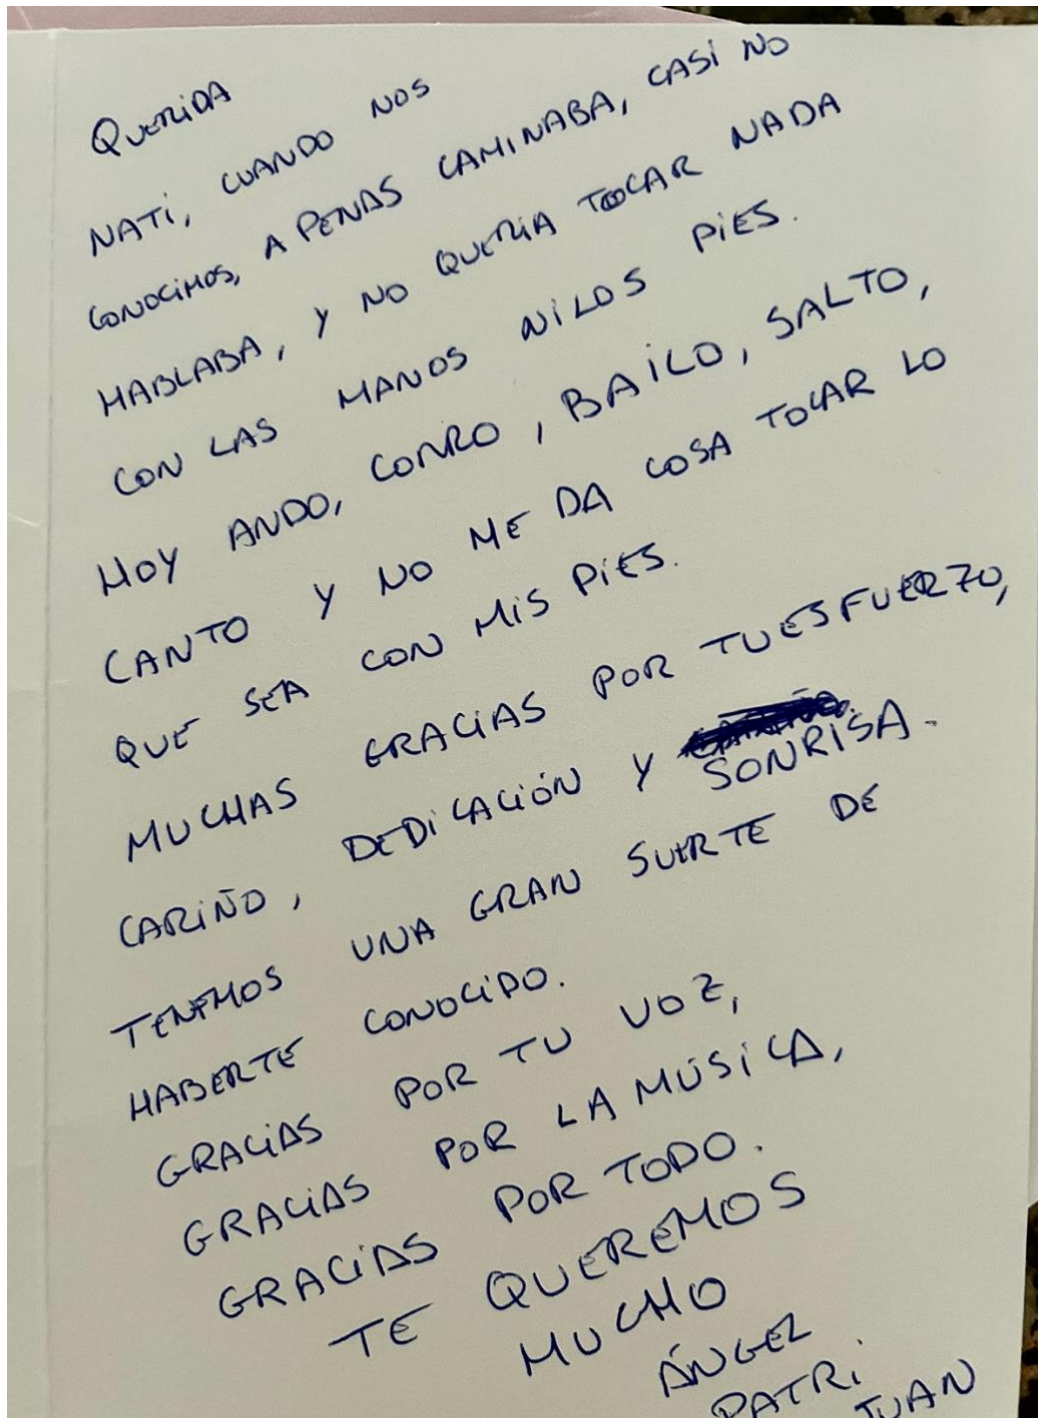 QUERIDA
NATI, CUANDO NOS
CONOCIMOS, A PENAS CAMINABA, CASI NO
HABLABA, Y NO QUERIA TOCAR NADA
CON LAS MANOS NI LOS PIES.
HOY ANDO, CORRO, BAILO, SALTO,
CANTO Y NO ME DA COSA TOCAR LO
QUE SEA CON MIS PIES.
MUCHAS GRACIAS POR TU ESFUERZO,
CARIÑO, DEDICACIÓN Y SONRISA.
TENEMOS UNA GRAN SUERTE DE
HABERTE CONOCIDO.
GRACIAS POR TU VOZ,
GRACIAS POR LA MÚSICA,
GRACIAS POR TODO.
TE QUEREMOS
MUCHO
ÁNGEL
PATRI.
JUAN